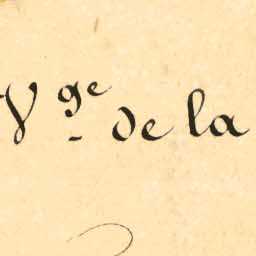 Vge de la